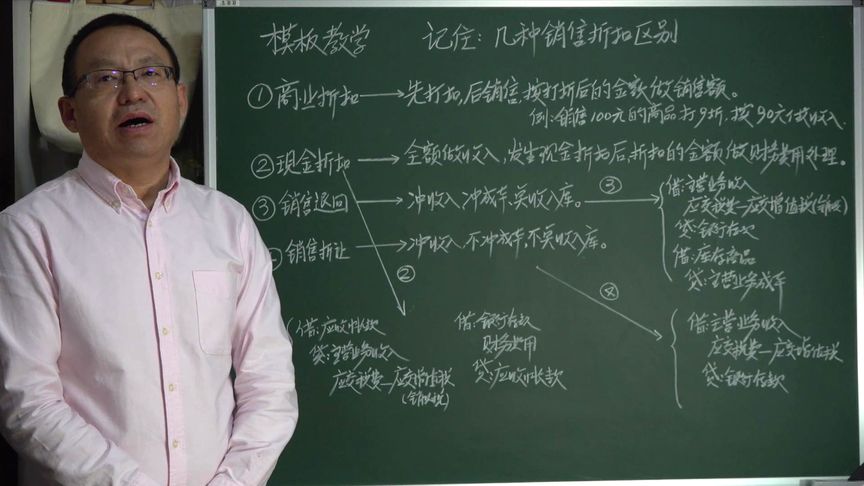 模板教学 记住：几种销售折扣区别
①商业折扣→先打扣,后销售,按打折后的金额做销售额。
例:销售100元的商品打9折,按90元做收入.
②现金折扣→全额做收入,发生现金折扣后,折扣的金额做财务费用处理。
③销售退回→冲收入,冲成本,实收入库。
销售折让→冲收入,不冲成本,不实收入库。
③
借:主营业务收入
应交税费—应交增值税(销项)
贷:银行存款
借:库存商品
贷:主营业务成本
②
借:应收账款
贷:主营业务收入
应交税费—应交增值税
(销项税)
借:银行存款
财务费用
贷:应收账款
④
借:主营业务收入
应交税费—应交增值税
贷:银行存款